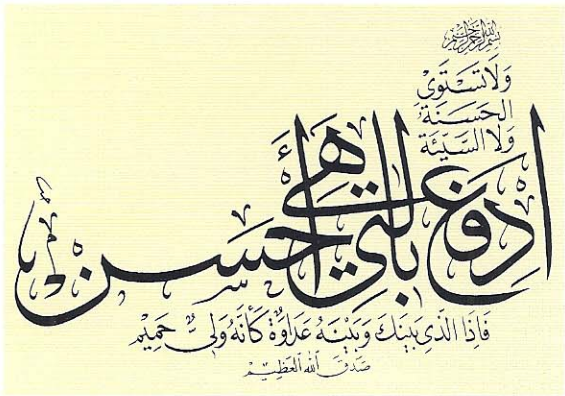 بسم الله الرحمن الرحيم
وَلَا تَسْتَوِي
الحَسَنَةُ
وَلَا السَّيِّئَةُ
ادْفَعْ بِالَّتِي هِيَ أَحْسَن
فَإِذَا الَّذِي بَيْنَكَ وَبَيْنَهُ عَدَاوَةٌ كَأَنَّهُ وَلِيٌّ حَمِيْم
صَدَقَ اللهُ العَظِيْم